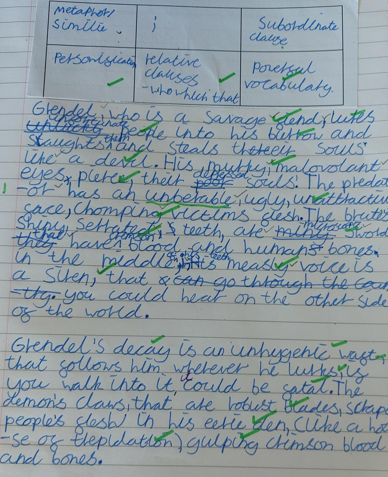 metaphor/ ; Subordinate
simile clause
Personification relative Powerful
clauses vocabulary.
- who which that
Grendel, who is a savage fiend, lures
people into his burrow and
slaughts and steals their souls
like a devil. His, mutty, malovolant
eyes, pierce their souls. The predat
-or has an unberable, ugly, unattractive
face, chomping victims flesh. The
teeth, are sword
have blood and humans bones.
in the middle, His measly voice is
a siren, that
you could hear on the other side
of the world.
Grendel's decay is an unhygenic waste,
that follows him wherever he lurks, is
you walk into it, could be fatal. The
demons claws, that are robust blades, scrape
people's flesh in his eerie den, (like a ho
-se of trepidation) gulping crimson blood
and bones.